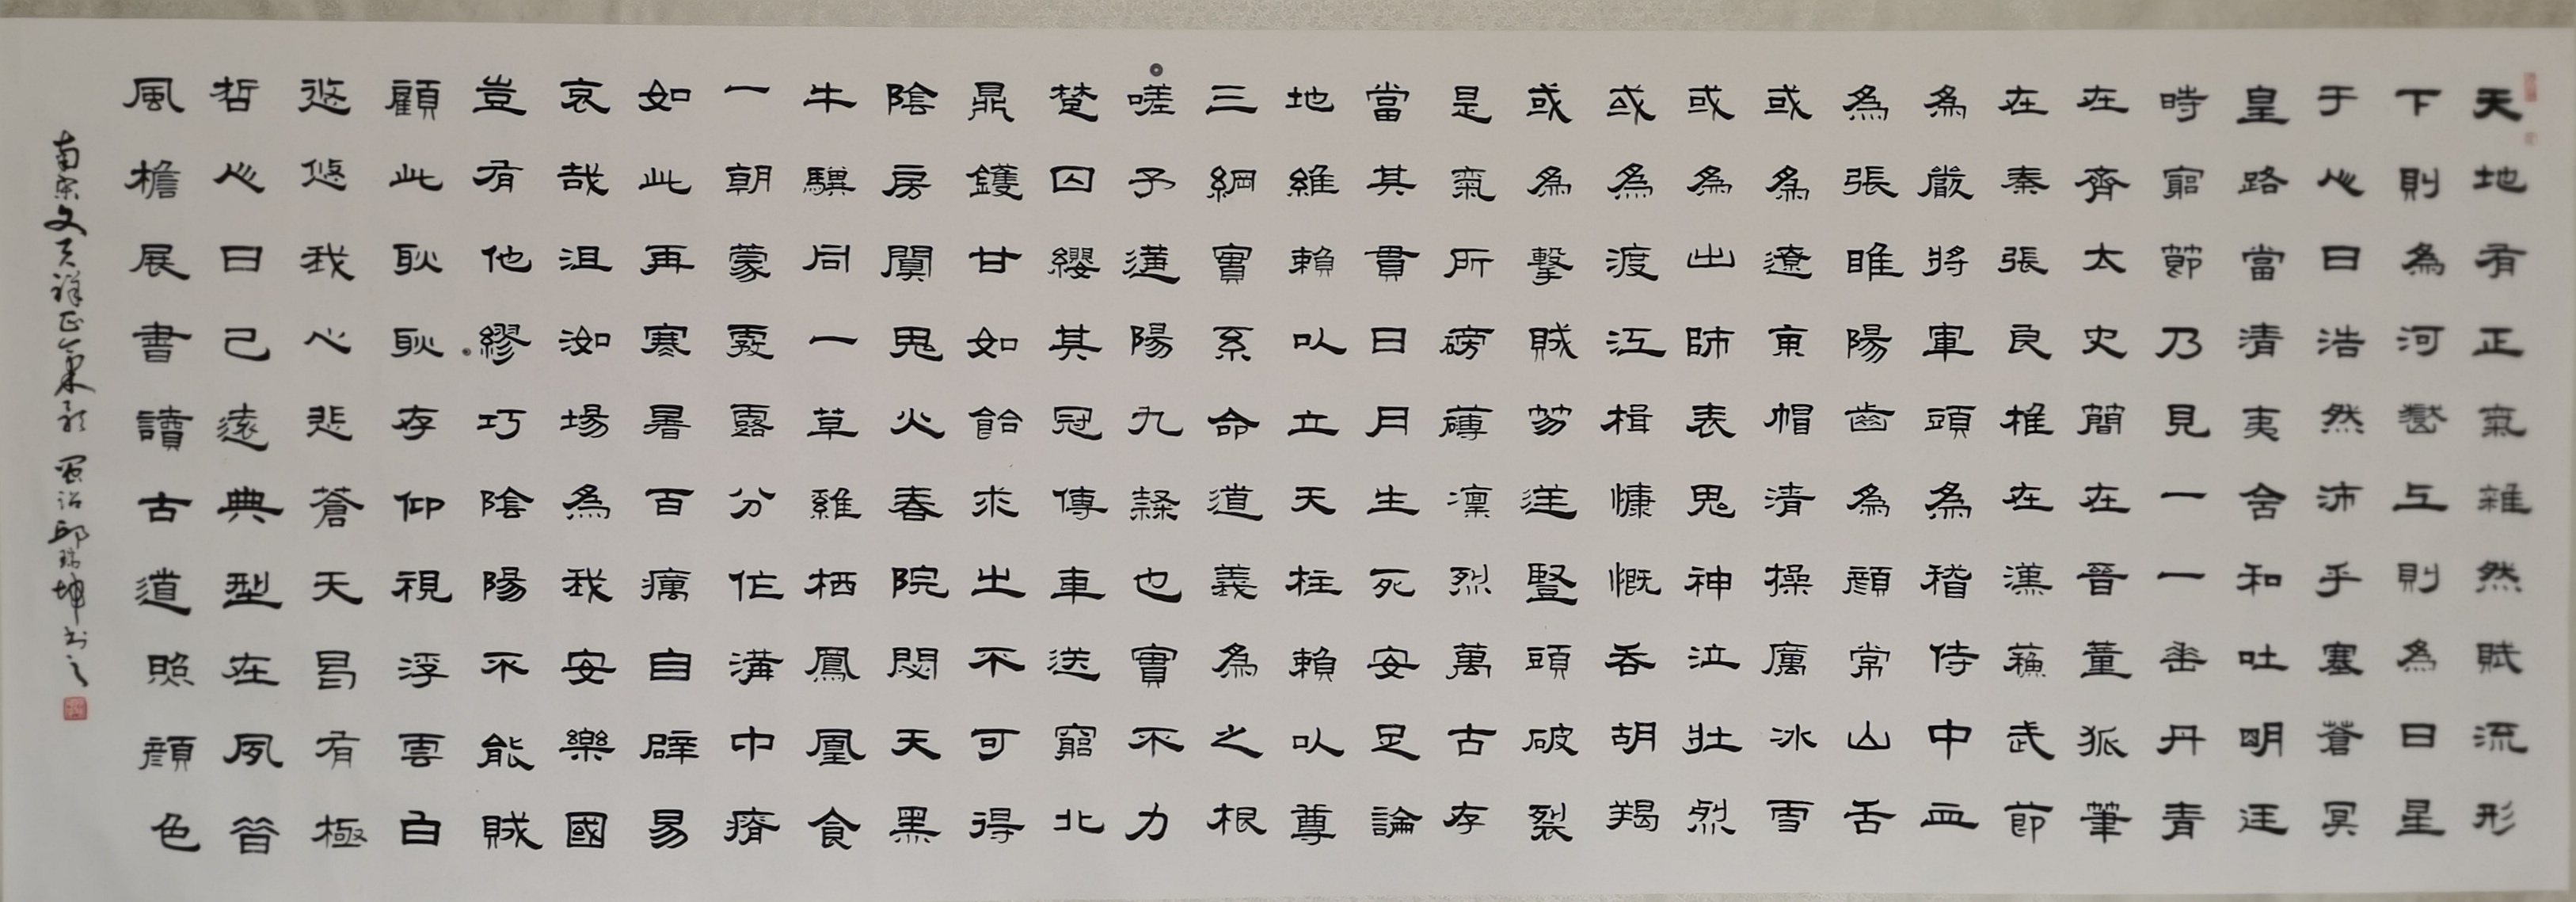 天地有正氣雜然賦流形
下則為河嶽上則為日星
于心曰浩然沛乎塞蒼冥
皇路當清夷含和吐明廷
時窮節乃見一一垂丹青
在齊太史簡在晉董狐筆
在秦張良椎在漢蘇武節
為嚴將軍頭為稽侍中血
為張睢陽齒為顏常山舌
或為遼東帽清操厲冰雪
或為出師表鬼神泣壯烈
或為渡江楫慷慨吞胡羯
或為擊賊笏逆豎頭破裂
是氣所磅礴凜烈萬古存
當其貫日月生死安足論
地維賴以立天柱賴以尊
三綱實系命道義為之根
嗟予遘陽九隸也實不力
楚囚纓其冠傳車送窮北
鼎鑊甘如飴求之不可得
陰房闃鬼火春院閟天黑
牛驥同一草雞栖鳳凰食
一朝蒙霧露分作溝中瘠
如此再寒暑百癘自辟易
哀哉沮洳場為我安樂國
豈有他繆巧陰陽不能賊
顧此耿耿存仰視浮雲白
悠悠我心悲蒼天曷有極
哲心日己遠典型在夙昔
風檐展書讀古道照顏色
南宋文天祥正氣歌 閩詔邱瑞坤书之